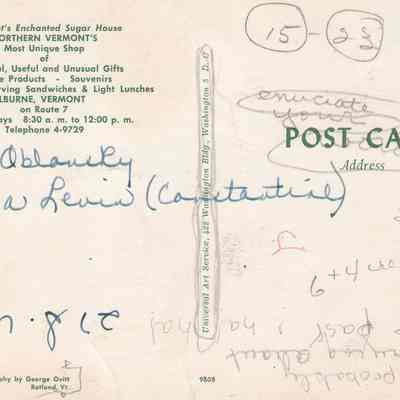 t's Enchanted Sugar House
ORTHERN VERMONT'S
Most Unique Shop
of
l, Useful and Unusual Gifts
e Products - Souvenirs
rving Sandwiches & Light Lunches
LBURNE, VERMONT
on Route 7
ays 8:30 a. m. to 12:00 p. m.
Telephone 4-9729
15 - 22
enuciate
your
POST CA
Address
Oblonsky
a Levin (Constantine)
Universal Art Service, 422 Washington Bldg., Washington 5 D.C.
m 4 + 9
past, ha ha
about
probably
phy by George Ovitt
Rutland, Vt.
9808